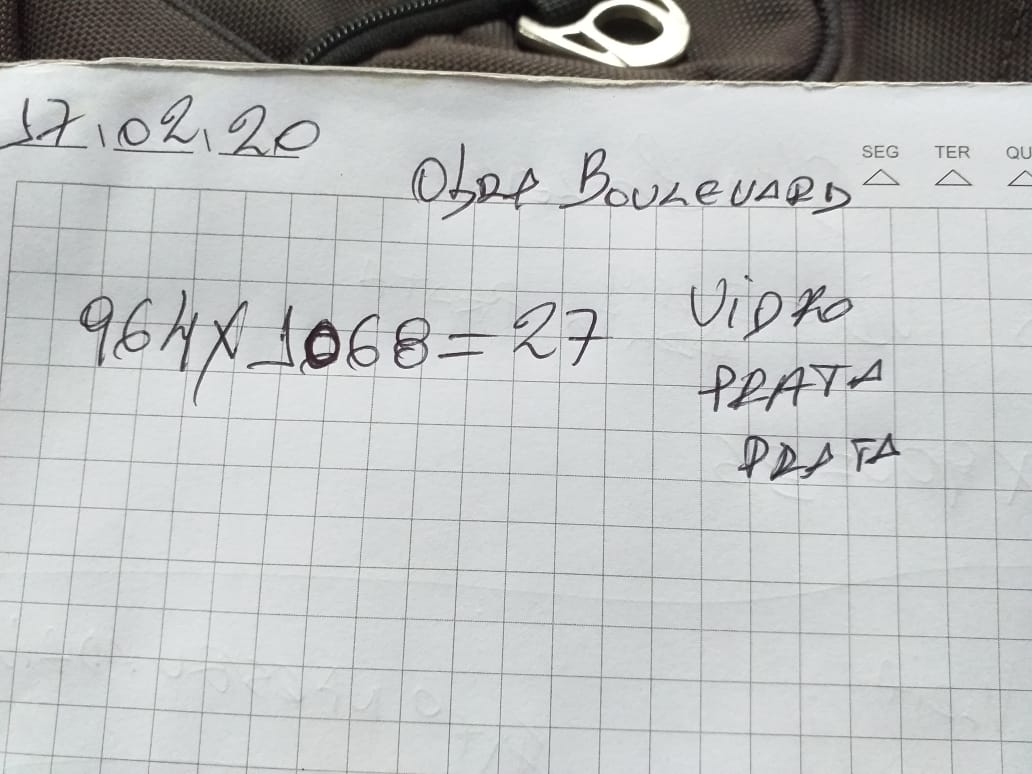 17.02.20
SEG TER QU
Obra BOULEVARD
964 x 1068 = 27
ViDRO
PRATA
PRATA